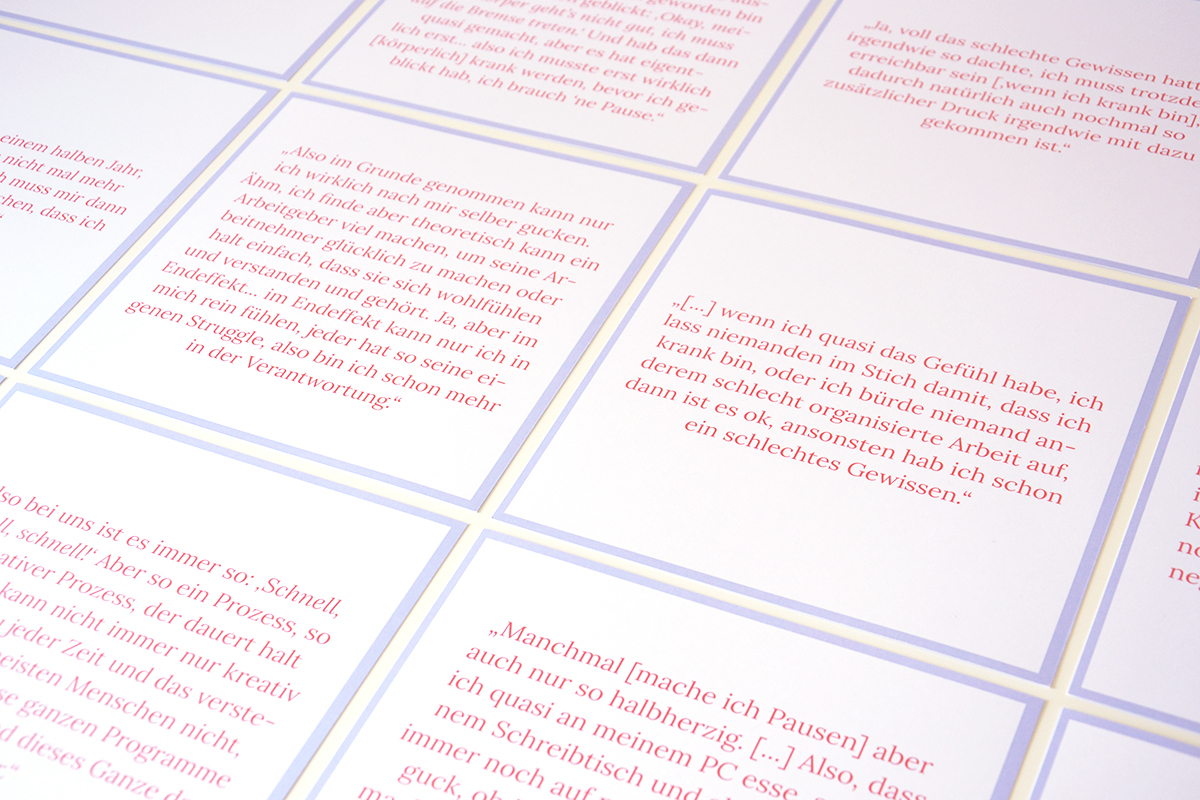 geworden bin
geblickt: ‚Okay, mei-
körper geht's nicht gut, ich muss
auf die Bremse treten.' Und hab das dann
quasi gemacht, aber es hat eigent-
lich erst... also ich musste erst wirklich
[körperlich] krank werden, bevor ich ge-
blickt hab, ich brauch 'ne Pause.“
„Ja, voll das schlechte Gewissen
irgendwie so dachte, ich muss
erreichbar sein [‚wenn ich krank bin],
dadurch natürlich auch nochmal so
zusätzlicher Druck irgendwie mit dazu
gekommen ist.“
einem halben Jahr,
nicht mal mehr
muss mir dann
dass ich
„Also im Grunde genommen kann nur
ich wirklich nach mir selber gucken.
Ähm, ich finde aber theoretisch kann ein
Arbeitgeber viel machen, um seine Ar-
beitnehmer glücklich zu machen oder
halt einfach, dass sie sich wohlfühlen
und verstanden und gehört. Ja, aber im
Endeffekt... im Endeffekt kann nur ich in
mich rein fühlen, jeder hat so seine ei-
genen Struggle, also bin ich schon mehr
in der Verantwortung.“
„[...] wenn ich quasi das Gefühl habe, ich
lass niemanden im Stich damit, dass ich
krank bin, oder ich bürde niemand an-
derem schlecht organisierte Arbeit auf,
dann ist es ok, ansonsten hab ich schon
ein schlechtes Gewissen.“
bei uns ist es immer so: ‚Schnell,
schnell!' Aber so ein Prozess, so
Prozess, der dauert halt
kann nicht immer nur kreativ
jeder Zeit und das verste-
Menschen nicht,
ganzen Programme
dieses Ganze
„Manchmal [mache ich Pausen] aber
auch nur so halbherzig. [...] Also, dass
ich quasi an meinem PC esse,
nem Schreibtisch und
immer noch auf
guck,